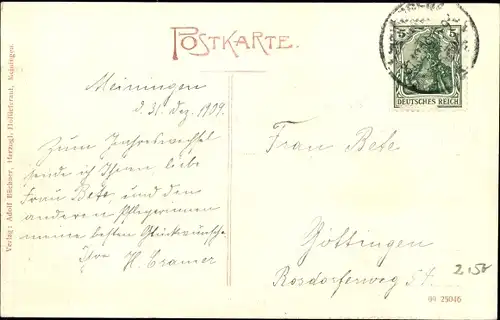 POSTKARTE.
5 5
DEUTSCHES REICH
Meiningen
d. 31. Dez. 1909.
Zum Jahreswechsel
sende ich Ihnen, liebe
Frau Bete, und den
anderen Pflegerinnen
meine besten Glückwünsche
Ihre H. Cramer
Frau Bete
Göttingen
Rosdorferweg 54.
2.50
09 25046
Verlag: Adolf Büchner, Herzogl. Hoflieferant, Meiningen.